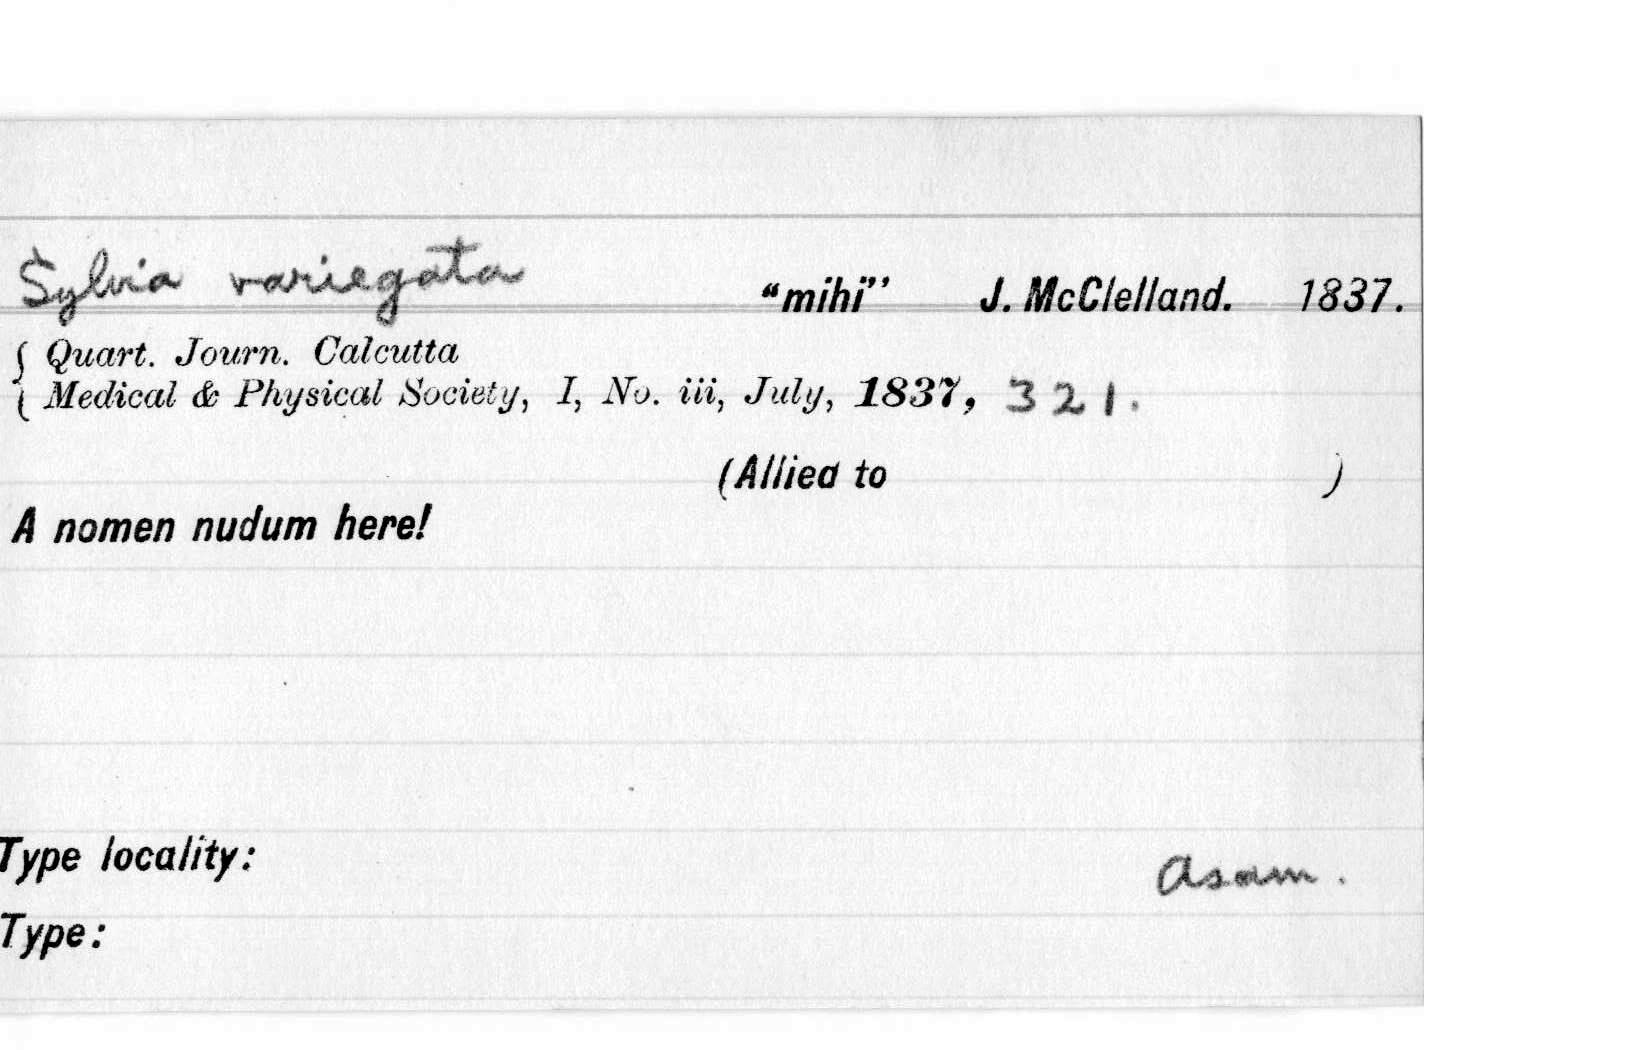 Sylvia variegata "mihi" J. McClelland. 1837.
{ Quart. Journ. Calcutta
{ Medical & Physical Society, I, No. iii, July, 1837, 321.
(Allied to )
A nomen nudum here!
Type locality: Asam.
Type: